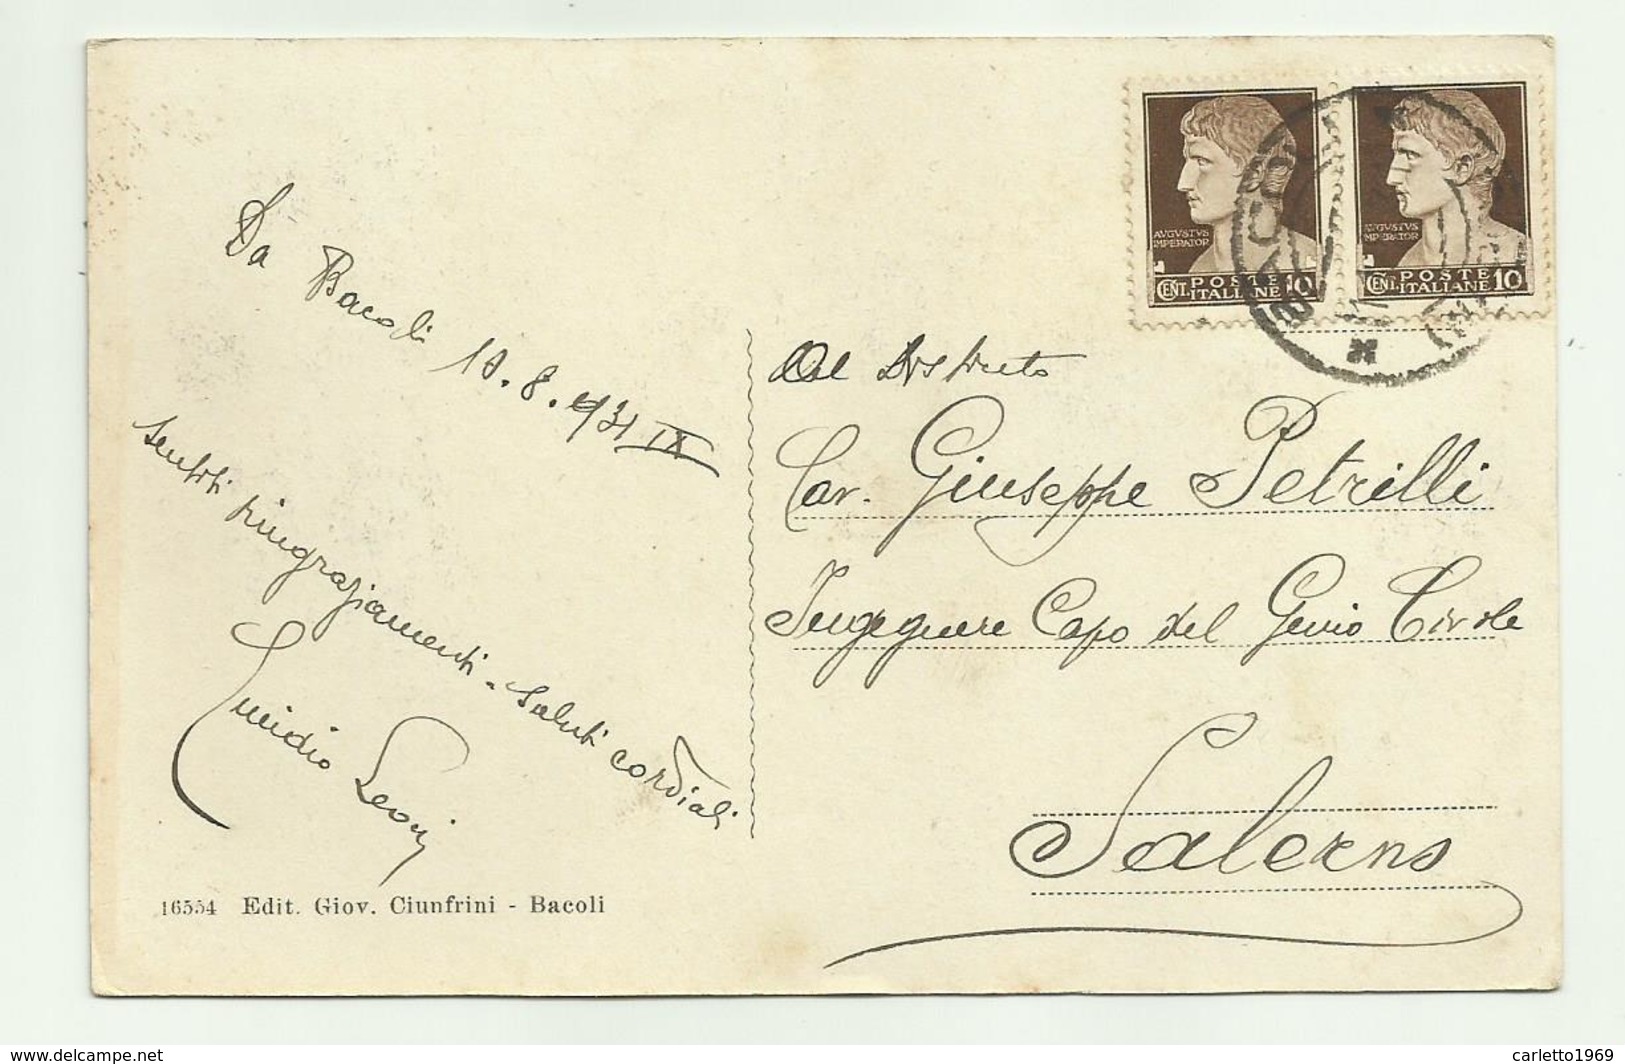 Da Bacoli 10.8.931 IX
sentiti ringraziamenti - saluti cordiali
Emidio Leoni
16554 Edit. Giov. Ciunfrini - Bacoli
AVGVSTVS
IMPERATOR
CENT. POSTE ITALIANE 10
AVGVSTVS
IMPERATOR
CENT. POSTE ITALIANE 10
Al Distinto
Cav. Giuseppe Petrilli
Ingegnere Capo del Genio Civile
Salerno
delcampe.net
carletto1969